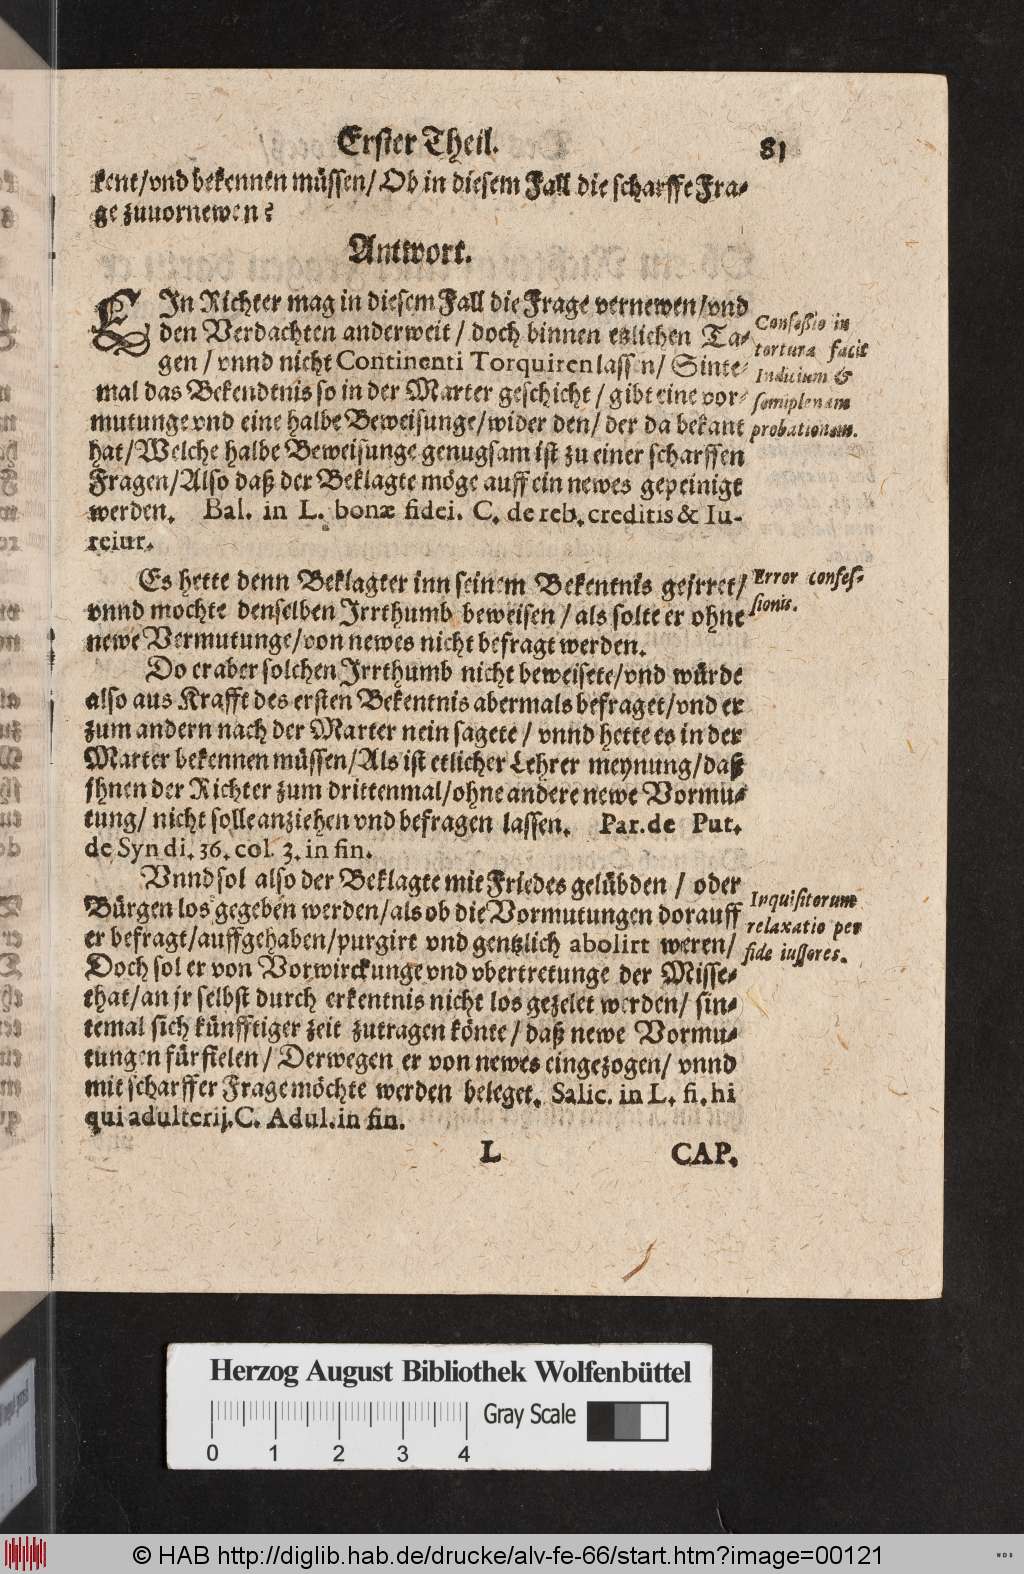 Erster Theil. 81
kent/vnd bekennen müssen/ Ob in diesem Fall die scharffe Fra-
ge zuuornewen?
Antwort.
EIn Richter mag in diesem Fall die Frage vernewen/vnd
den Verdachten anderweit / doch binnen etzlichen Ta-
gen / vnnd nicht Continenti Torquiren lassen/ Sinte-
mal das Bekendtnis so in der Marter geschicht / gibt eine vor-
mutunge vnd eine halbe Beweisunge/wider den/ der da bekant
hat/Welche halbe Beweisunge genugsam ist zu einer scharffen
Fragen/Also daß der Beklagte möge auff ein newes gepeinigt
werden. Bal. in L. bonæ fidei. C. de reb. creditis & Iu-
reiur.
Confeßio in
tortura facit
Indicium &
semiplenam
probationem.
Es hette denn Beklagter inn seinem Bekentnis geirret/
vnnd mochte denselben Irrthumb beweisen / als solte er ohne
newe Vermutunge/von newes nicht befragt werden.
Error confes-
sionis.
Do er aber solchen Irrthumb nicht beweisete/vnd würde
also aus Krafft des ersten Bekentnis abermals befraget/vnd er
zum andern nach der Marter nein sagete / vnnd hette es in der
Marter bekennen müssen/Als ist etlicher Lehrer meynung/daß
jhnen der Richter zum drittenmal/ohne andere newe Vormu-
tung/ nicht solle anziehen vnd befragen lassen. Par. de Put.
de Syndi. 36. col. 3. in fin.
Vnnd sol also der Beklagte mit Friedes gelübden / oder
Bürgen los gegeben werden/als ob die Vormutungen dorauff
er befragt/auffgehaben/purgirt vnd gentzlich abolirt weren/
Doch sol er von Vorwirckunge vnd vbertretunge der Misse-
that/an jr selbst durch erkentnis nicht los gezelet werden/ sin-
temal sich künfftiger zeit zutragen könte/ daß newe Vormu-
tungen fürfielen / Derwegen er von newes eingezogen/ vnnd
mit scharffer Frage möchte werden beleget. Salic. in L. fi. hi
qui adulterij. C. Adul. in fin.
Inquisitorum
relaxatio per
fide iussores.
L CAP.
Herzog August Bibliothek Wolfenbüttel
Gray Scale
0 1 2 3 4
© HAB http://diglib.hab.de/drucke/alv-fe-66/start.htm?image=00121